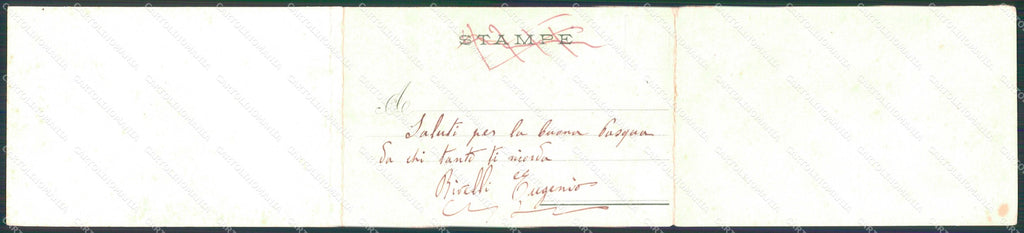 STAMPE
A
Saluti per la buona Pasqua
da chi tanto ti ricorda
Eugenio